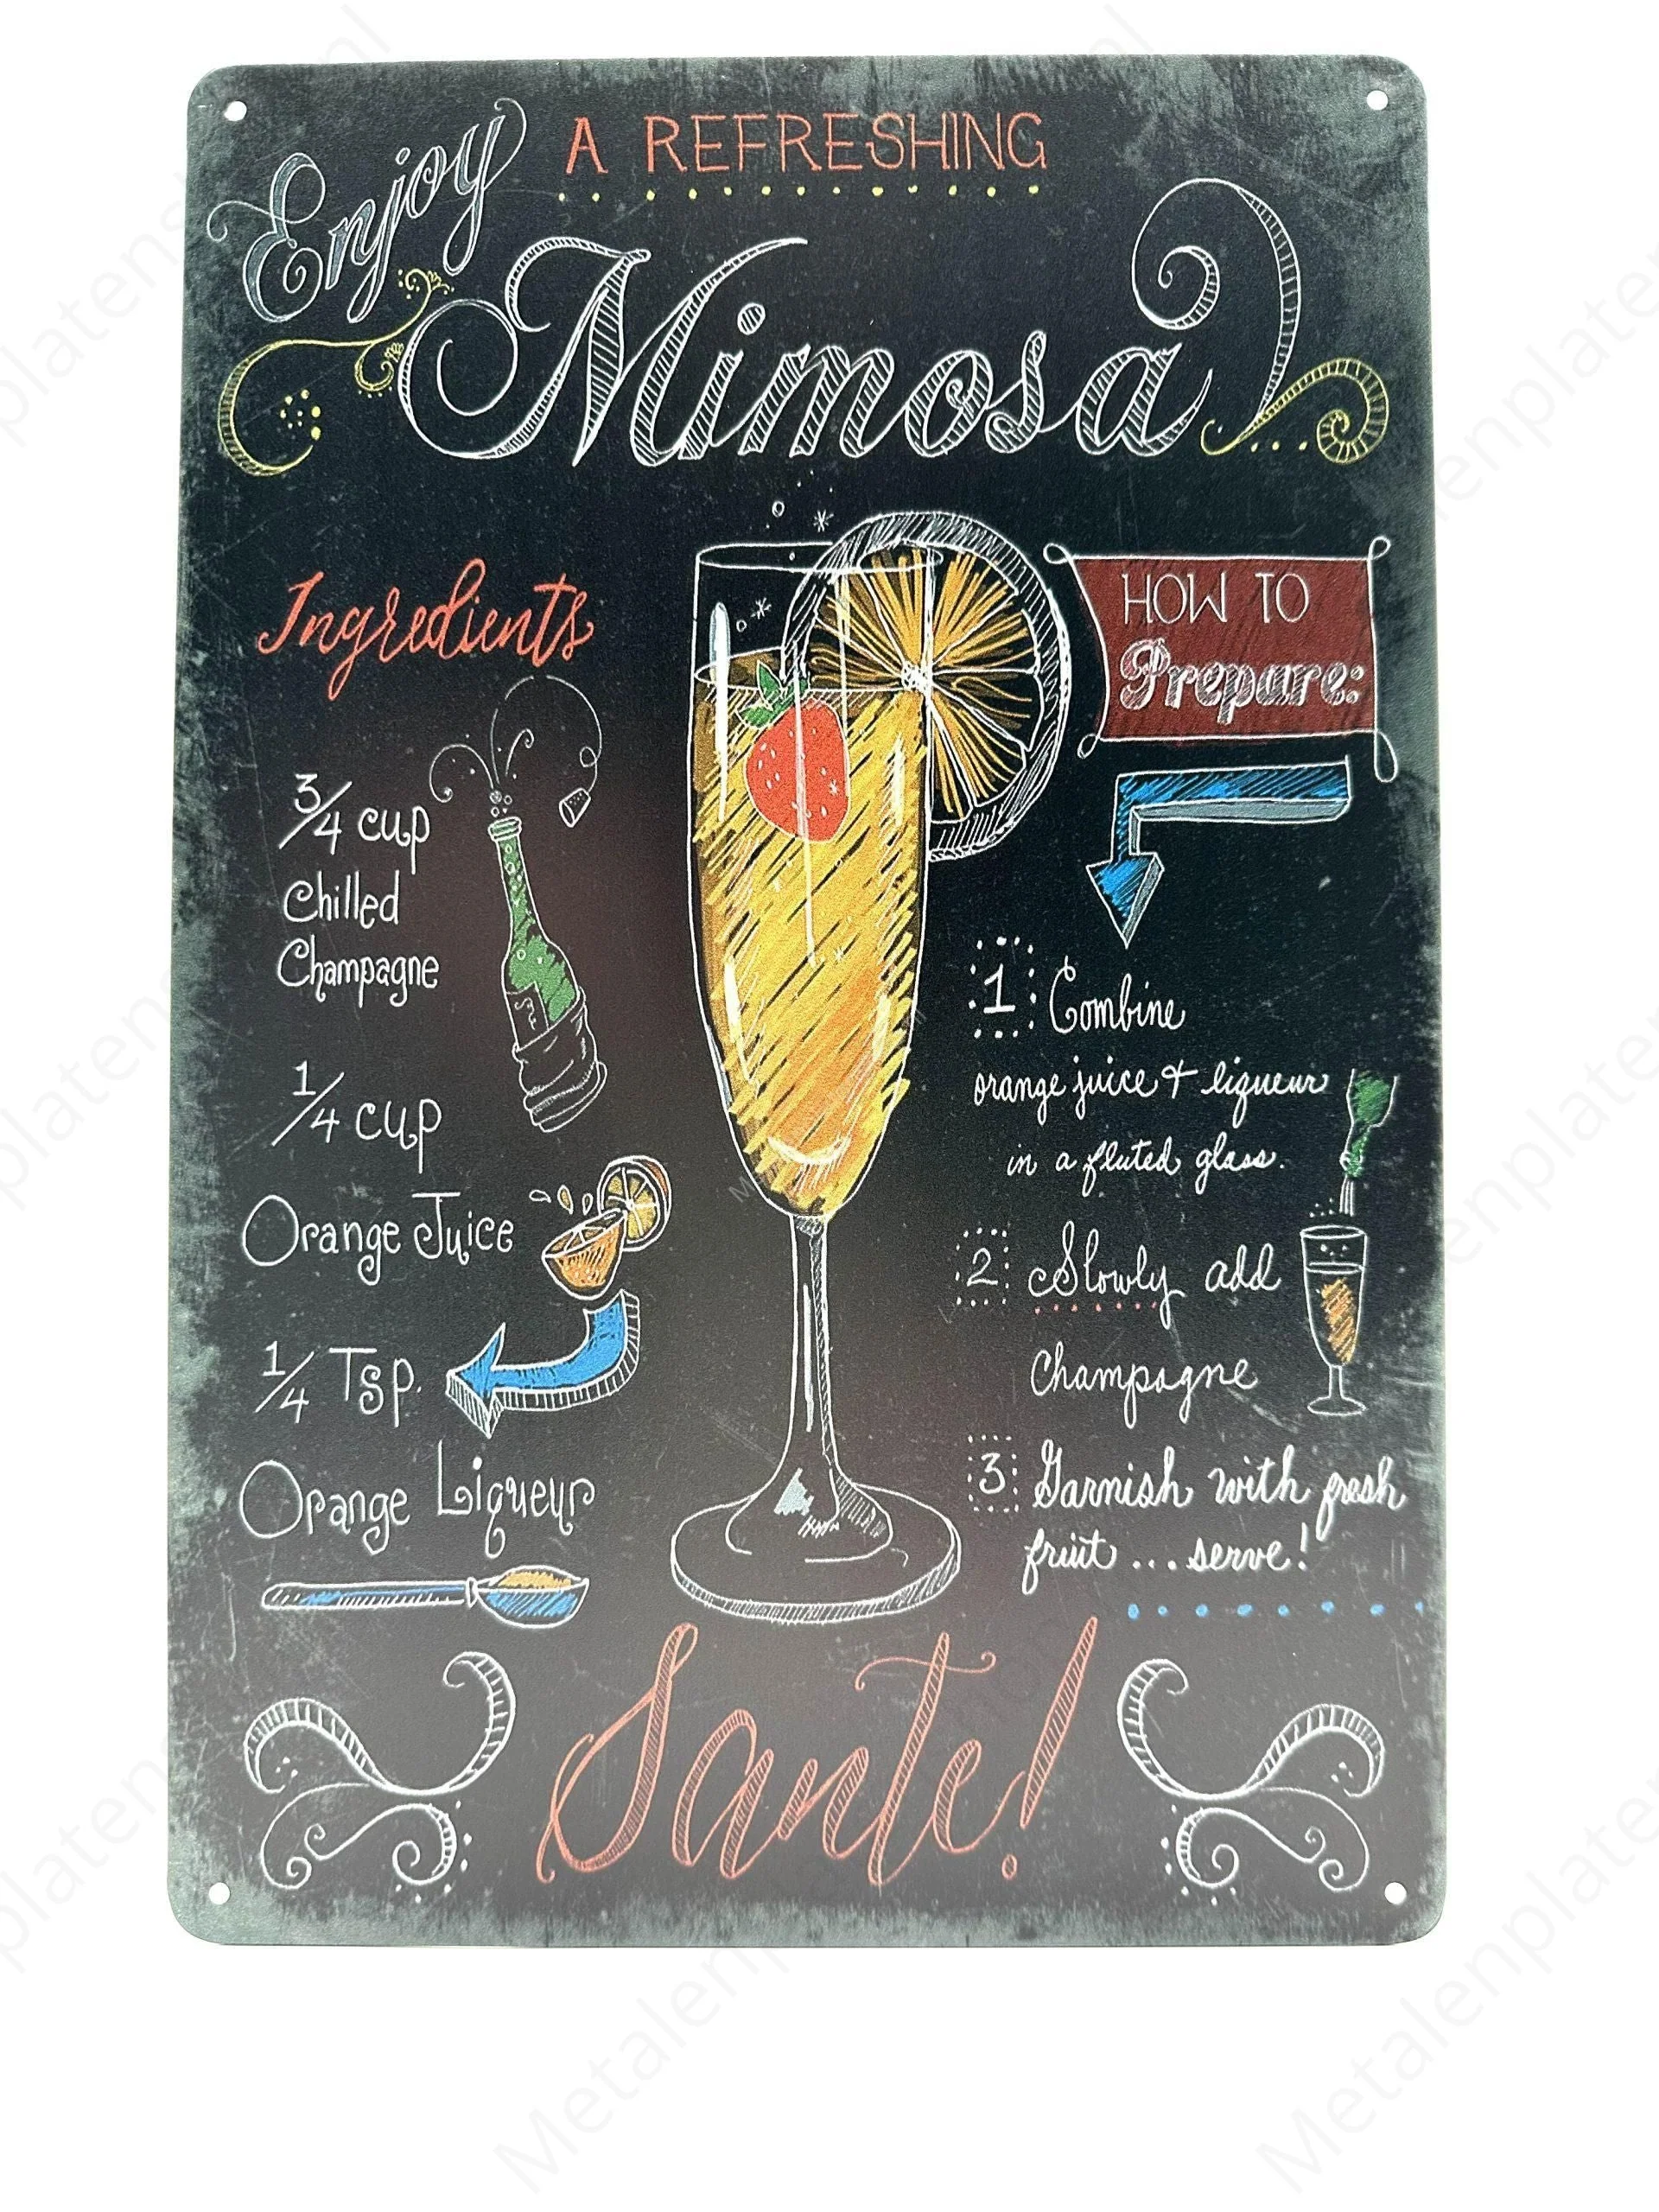 Enjoy
A REFRESHING
Mimosa
Ingredients
3/4 cup
Chilled
Champagne
1/4 cup
Orange Juice
1/4 Tsp.
Orange Liqueur
HOW TO
Prepare:
1 Combine
orange juice & liqueur
in a fluted glass.
2 Slowly add
Champagne
3 Garnish with fresh
fruit ... serve!
Sante!
Metalenplatenshop.nl